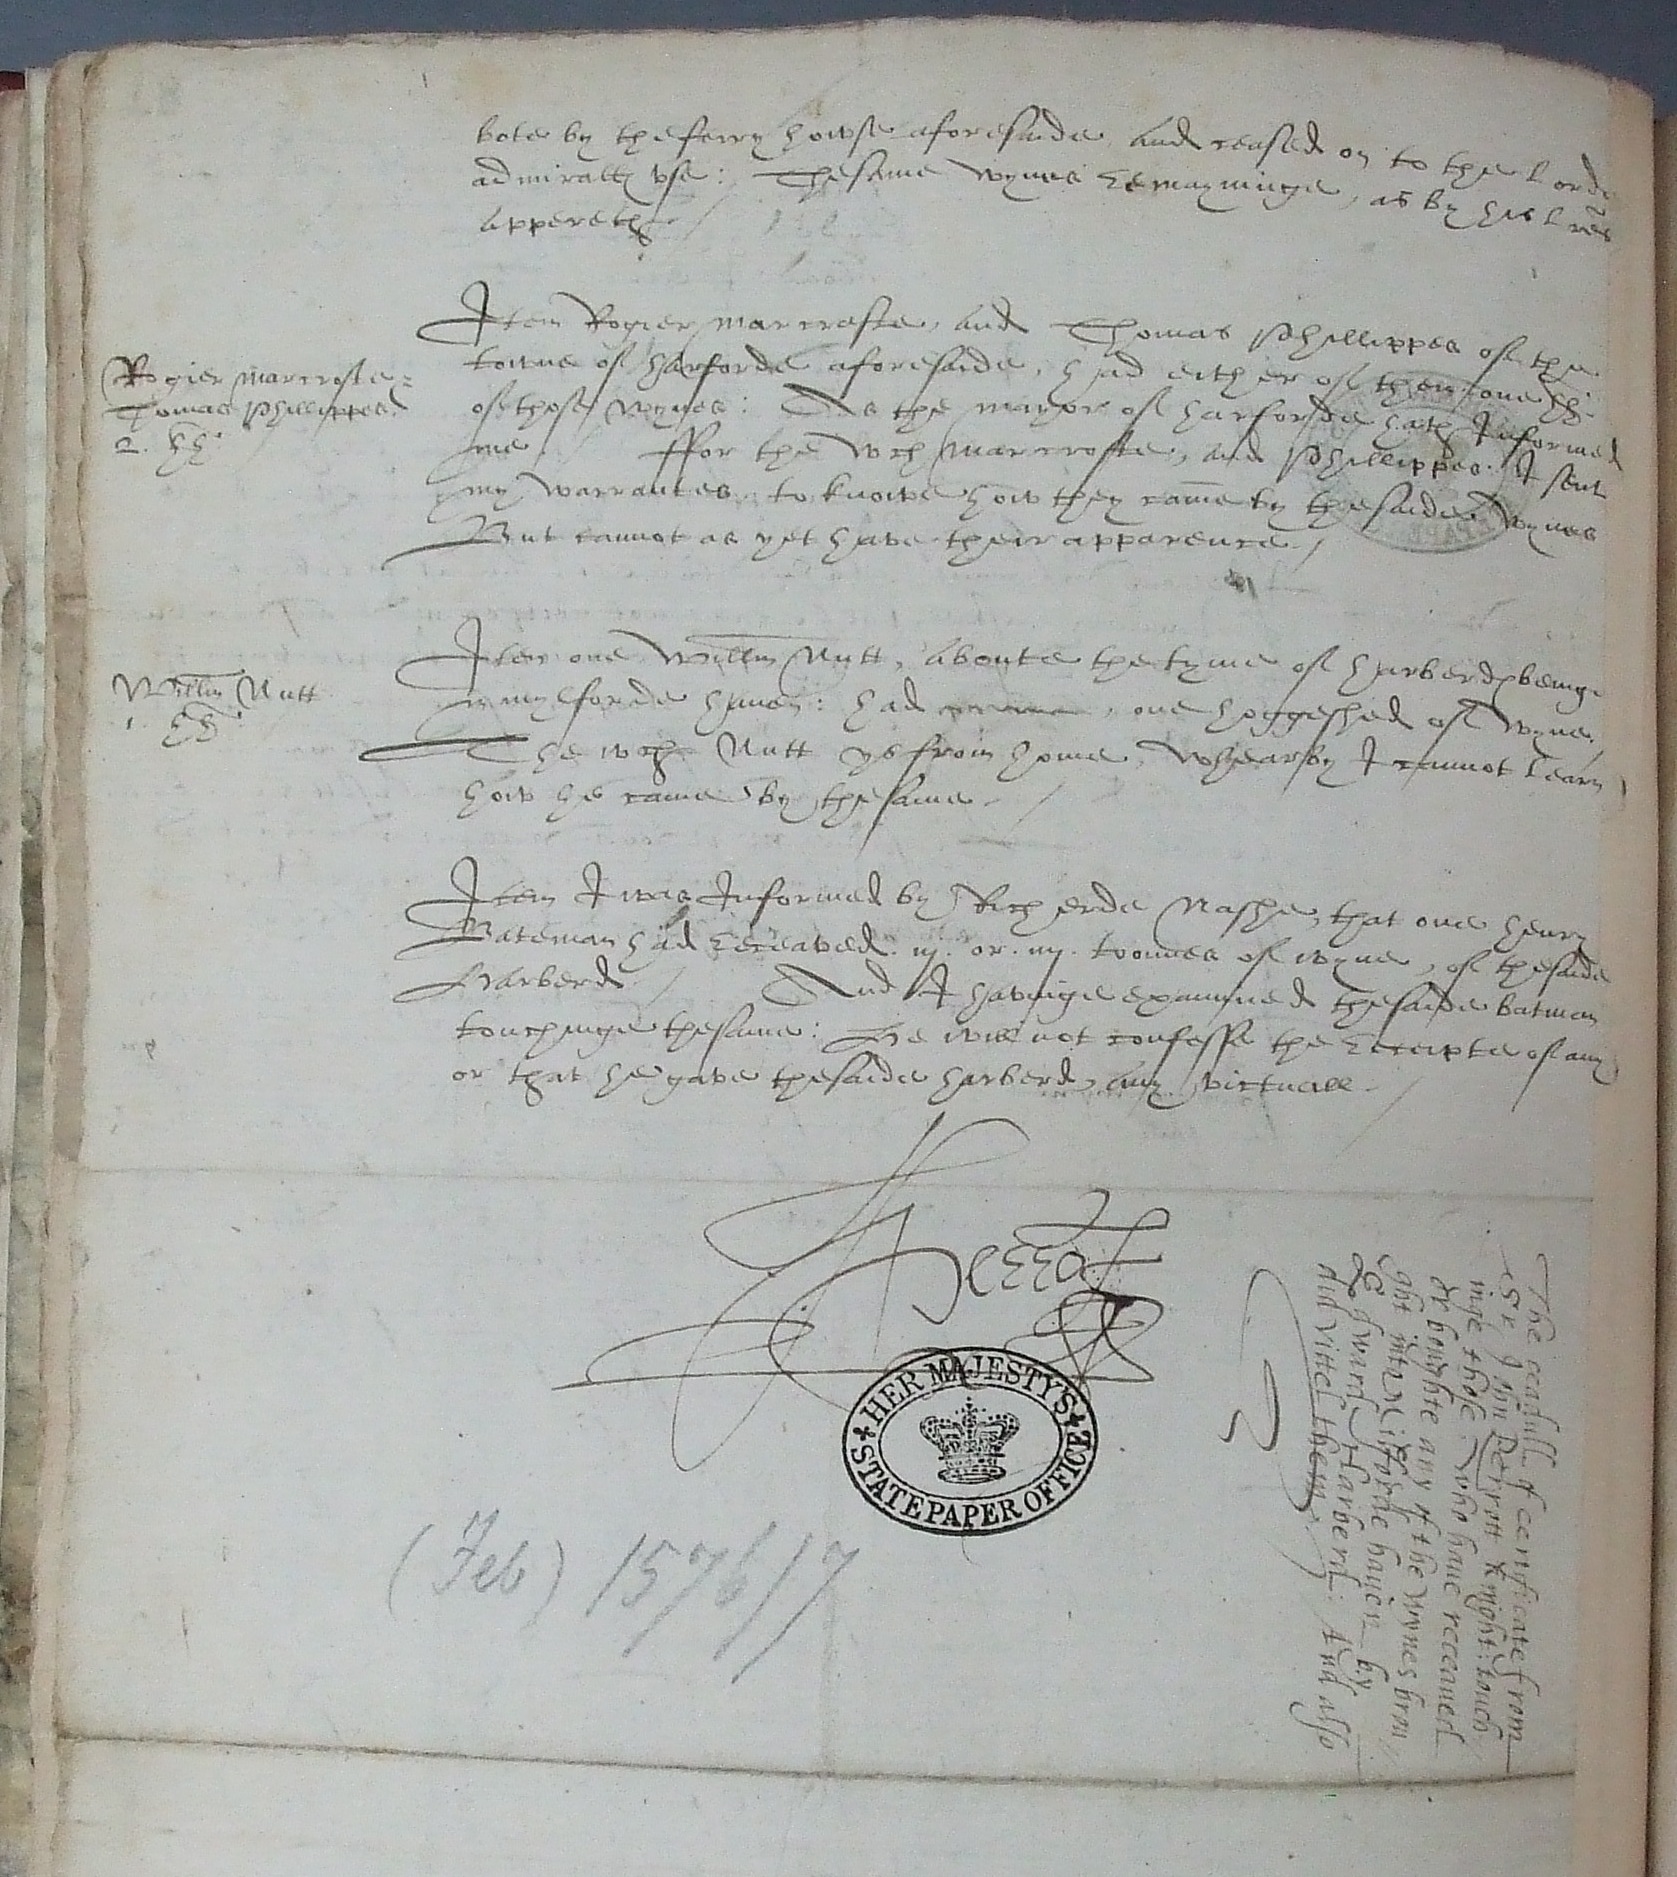 bote by the ferry howse aforesaide, and ceased on to the Lorde
admiralls vse: The same wynes remayninge, as by his lres
appereth
Rogier Marcrofte
Thomas Phillippes
2. hh
Item Rogier Marcrofte, and Thomas Phillippes of the
towne of harforde aforesaide, had either of them one hh
of those wynes: As the mayor of harforde hath Informed
me. ffor the wch Marcrofte, and Phillippes. I sent
my warrantes to knowe how they came by thesaide wynes
But cannot as yet have their apparence
Willm Nutt
1 hh
Item one Willm Nutt, aboute the tyme of harberds beinge
in mylforde haven: had one hoggeshed of wyne.
The wch Nutt ys from home, whearby I cannot learn
how he came by the same
Item I was Informed by Richerde Nashe, that one henry
Bateman had receaved. iij. or. iiij. tonnes of wyne, of thesaide
Harberd And I havinge examined thesaide batman
touchinge thesame: He will not confesse the receipte of any
or that he gave thesaide harberd, any victuall
Perrot
HER MAJESTY'S STATE PAPER OFFICE
(Feb) 1576/7
The of certificate from
Sr John Perrott Knight: touch
inge those, who haue receaued
or boughte any of the wynes brou
ght into milforde hauen by
Edward Harberd: And also
did vittel them.